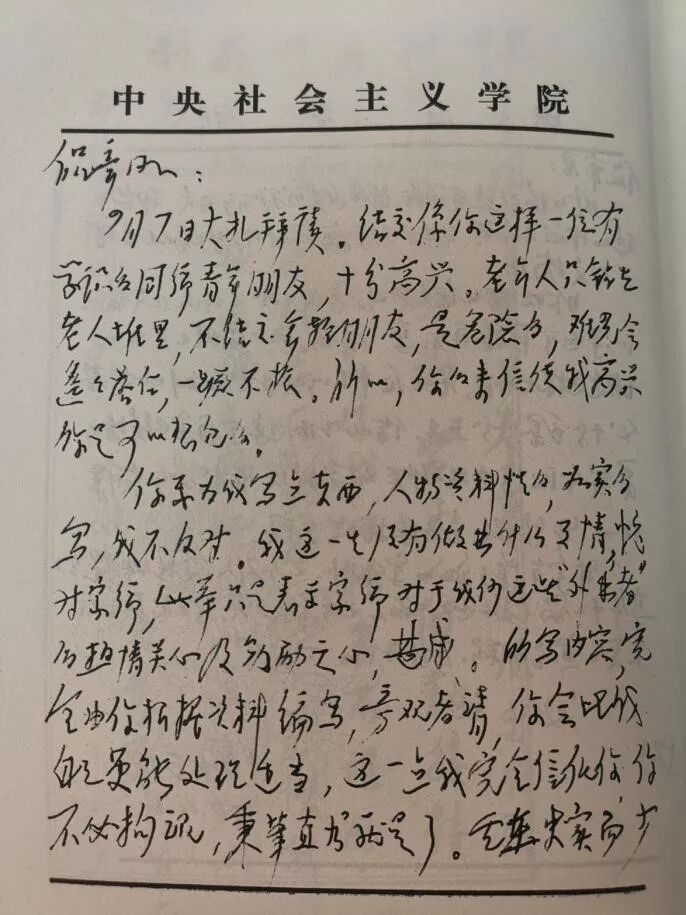 中央社会主义学院
保章同心：
9月7日大札拜读。结交像你这样一位有
学识的同乡青年朋友，十分高兴。老年人只钻在
老人堆里，不结交年轻朋友，是危险的，难免会
暮气，一蹶不振。所以，你的来信使我高兴
你是可以想见的。
你要为我写点东西，人物资料性的，如实的
写，我不反对。我这一生没有做出什么事情，愧
对家乡，此举只是表示家乡对于我们这些“外来者”
的热情关心及鼓励之心，甚感。所写内容，完
全由你根据资料编写，旁观者清，你会比我
自己更能处理适当，这一点我完全信任你，你
不必拘泥，秉笔直书就是了。尊重史实而少